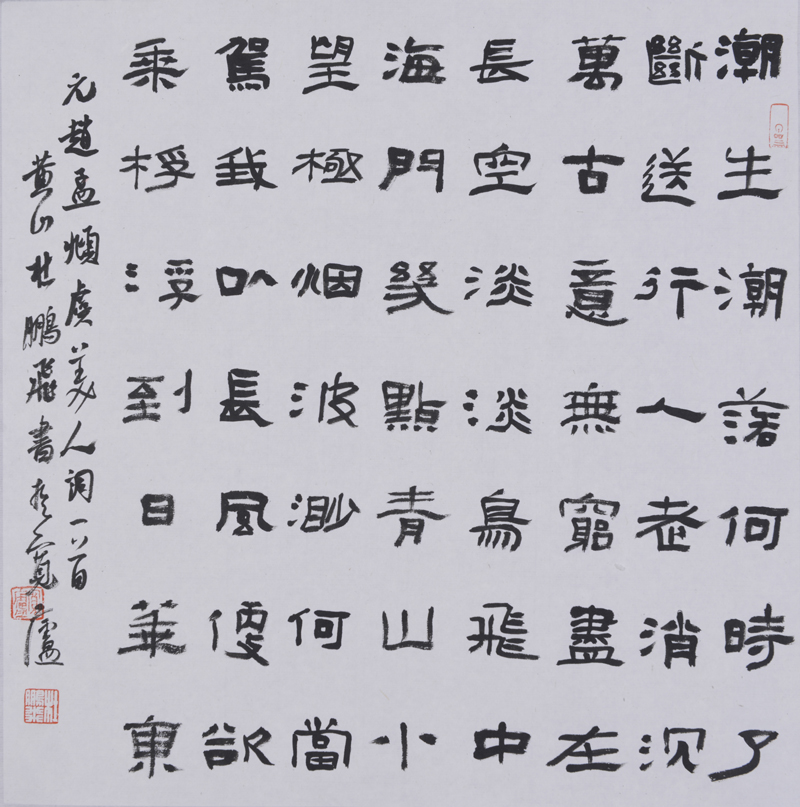 潮生潮落何時了
斷送行人老消沉
萬古意無窮盡在
長空淡淡鳥飛中
海門幾點青山小
望極烟波渺何當
駕我以長風便欲
乘桴浮到日華東
元趙孟頫虞美人詞一首
黄山杜鵬飛書於寬廬